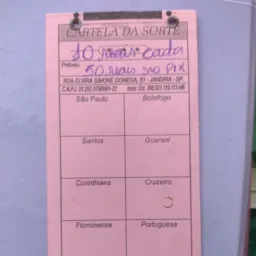 CARTELA DA SORTE
10 reais cada
Prêmio:
50 reais no PIX
RUA ELVIRA SIMONE DONEGA, 51 - JANDIRA - SP.
São Paulo Botafogo
Santos Guarani
Corinthians Cruzeiro
Fluminense Portuguesa